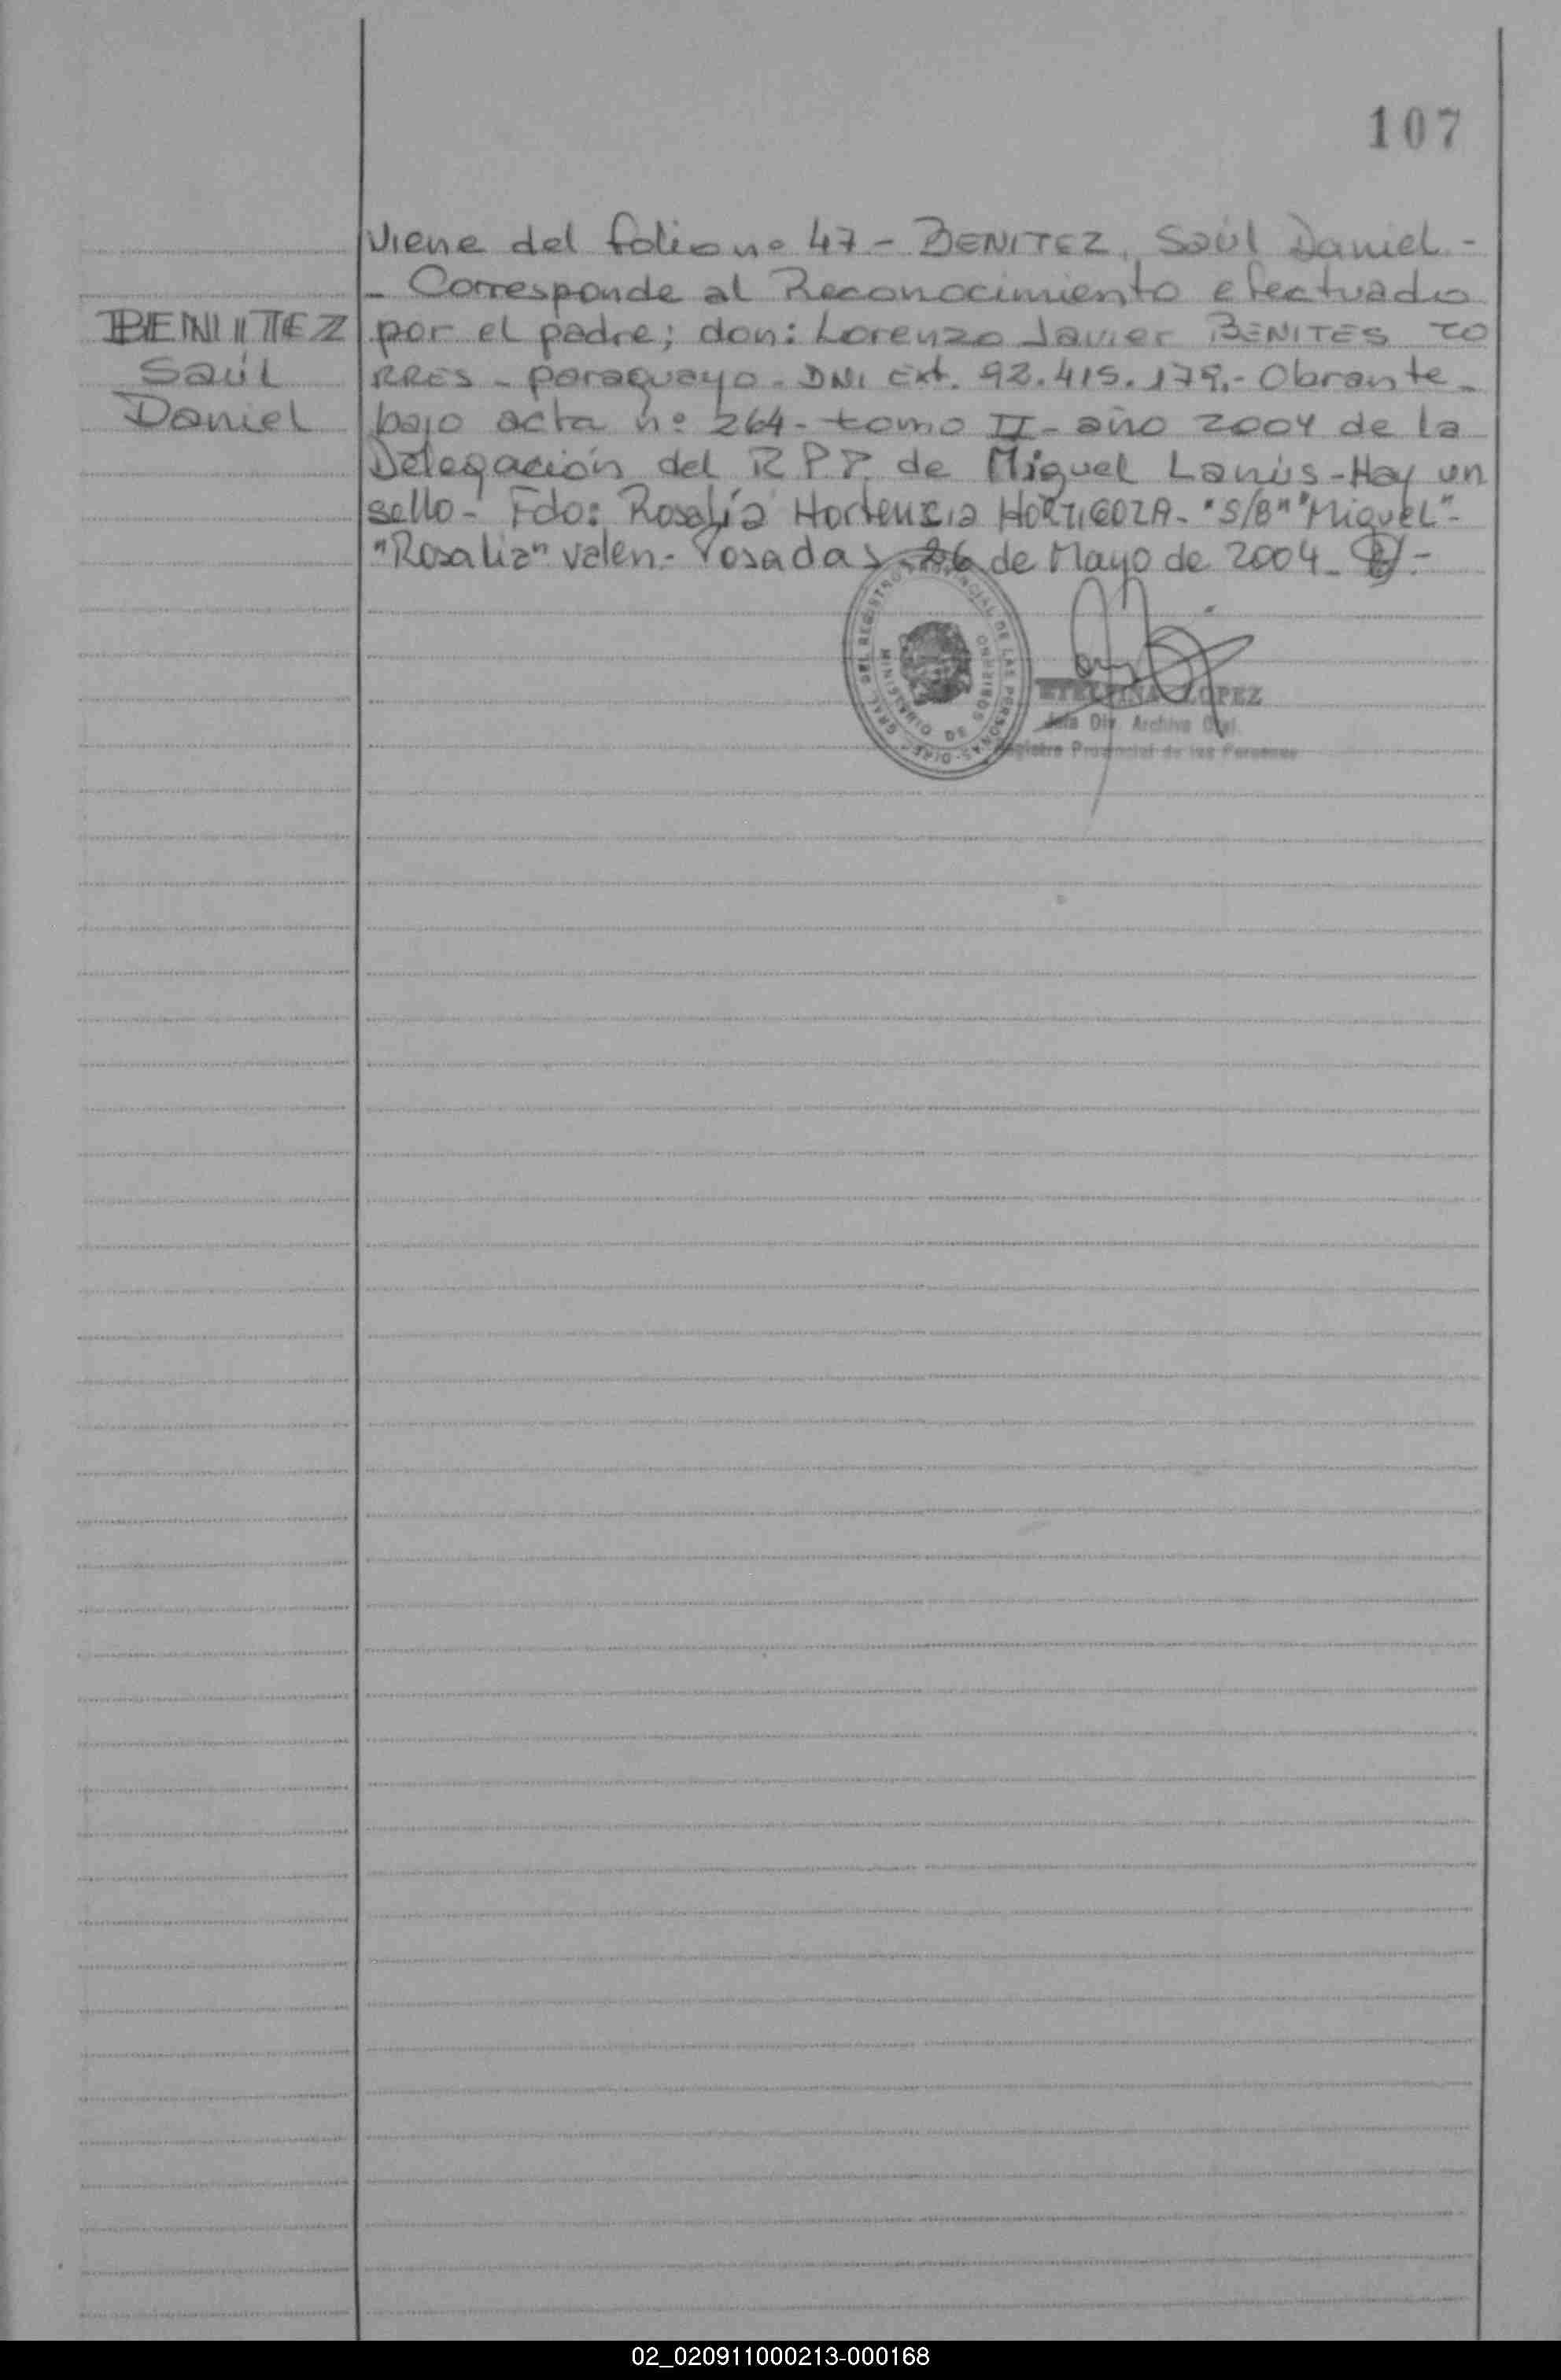 107
BENITEZ
Saúl
Daniel
Viene del folio nº 47 - BENITEZ, Saúl Daniel. -
- Corresponde al Reconocimiento efectuado
por el padre; don: Lorenzo Javier BENITES TO
RRES - paraguayo - DNI Ext. 92.415.179.- Obrante -
bajo acta nº 264 - tomo II - año 2004 de la
Delegación del R.P.P. de Miguel Lanús - Hay un
sello - Fdo: Rosalía Hortensia HORTIGOZA - "S/B" "Miguel" -
"Rosalia" valen.- Posadas 26 de Mayo de 2004. -
GRAL. DEL REGISTRO PROVINCIAL DE LAS PERSONAS - DIREC.
MINISTERIO DE GOBIERNO
LOPEZ
Jefa Div. Archivo Gral.
Registro Provincial de las Personas
02_020911000213-000168